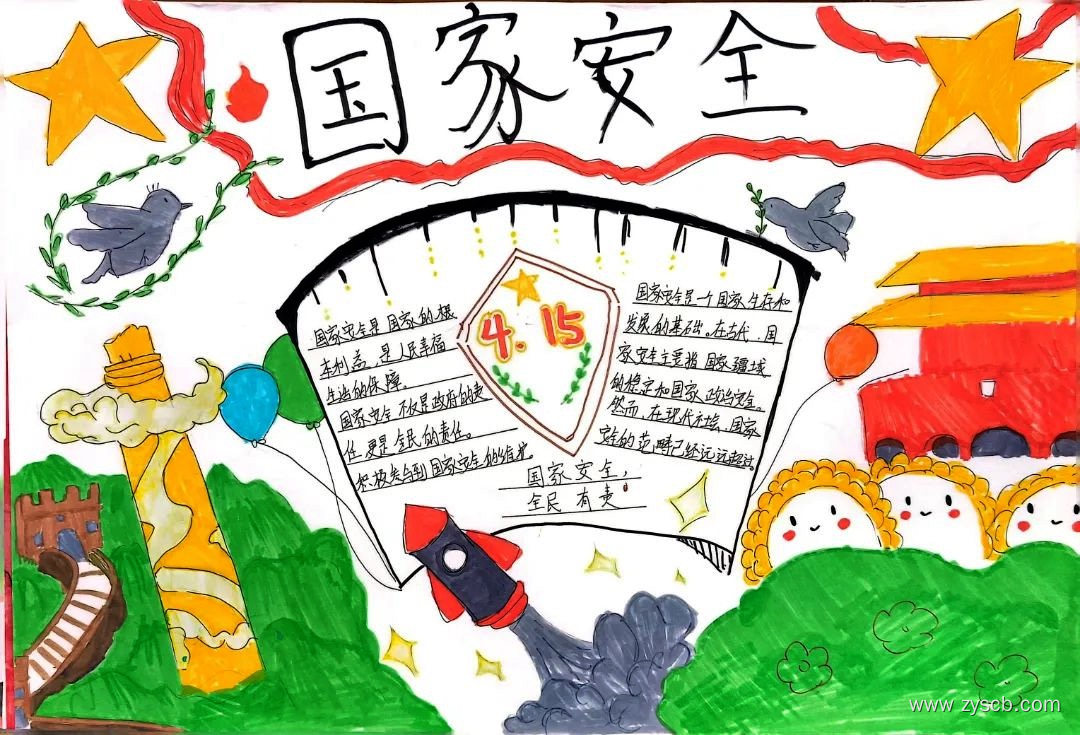 国家安全
国家安全是国家的根
本利益,是人民幸福
生活的保障。
国家安全不仅是政府的责
任,更是全民的责任。
积极参与到国家安全的维护
4.15
国家安全是一个国家生存和
发展的基础。在古代,国
家安全主要指国家疆域
的稳定和国家政治安全。
然而,在现代社会,国家
安全的范畴已经远远超过。
国家安全,
全民有责
www.zyscb.com